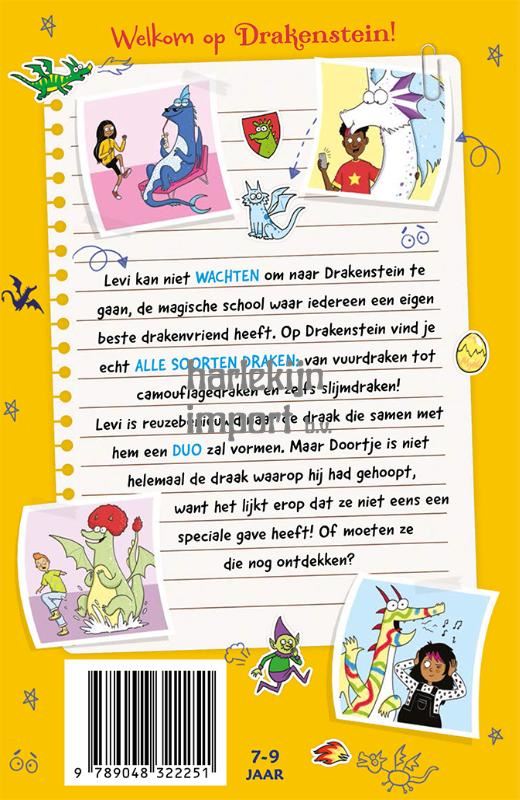 Welkom op Drakenstein!
Levi kan niet WACHTEN om naar Drakenstein te
gaan, de magische school waar iedereen een eigen
beste drakenvriend heeft. Op Drakenstein vind je
echt ALLE SOORTEN DRAKEN: van vuurdraken tot
camouflagedraken en zelfs slijmdraken!
harlekijn
import b.v.
Levi is reuzebenieuwd naar de draak die samen met
hem een DUO zal vormen. Maar Doortje is niet
helemaal de draak waarop hij had gehoopt,
want het lijkt erop dat ze niet eens een
speciale gave heeft! Of moeten ze
die nog ontdekken?
9 789048 322251
7-9
JAAR